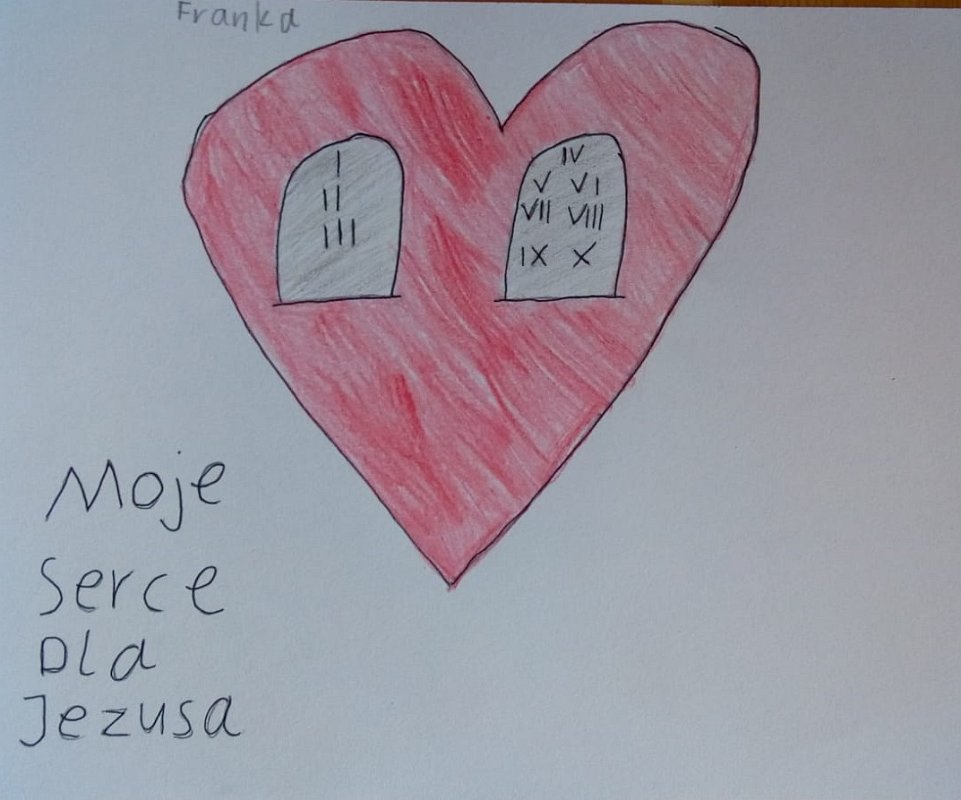 Franka
I
II
III
IV
V VI
VII VIII
IX X
Moje
Serce
Dla
Jezusa